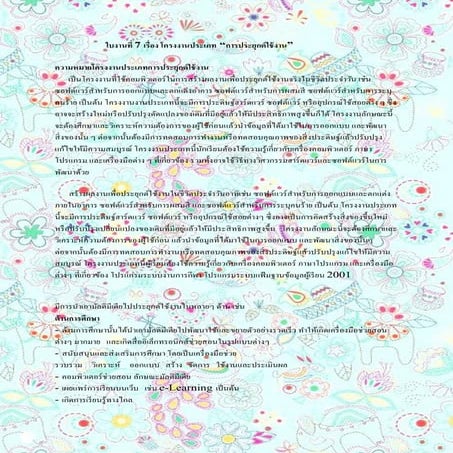 ใบงานที่ 7 เรื่อง โครงงานประเภท “การประยุกต์ใช้งาน”
ความหมายโครงงานประเภทการประยุกต์ใช้งาน
เป็นโครงงานที่ใช้คอมพิวเตอร์ในการสร้างผลงานเพื่อประยุกต์ใช้งานจริงในชีวิตประจำวัน เช่น
ซอฟต์แวร์สำหรับการออกแบบและตกแต่งอาคาร ซอฟต์แวร์สำหรับการผสมสี และซอฟต์แวร์สำหรับการระบุค
นร้าย เป็นต้น โครงงานงานประเภทนี้จะมีการประดิษฐ์ฮาร์ดแวร์ ซอฟต์แวร์ หรืออุปกรณ์ใช้สอยต่างๆ ซึ่ง
อาจจะสร้างใหม่หรือปรับปรุงดัดแปลงของเดิมที่มีอยู่แล้วให้มีประสิทธิภาพสูงขึ้นก็ได้ โครงงานลักษณะนี้
จะต้องศึกษาและวิเคราะห์ความต้องการของผู้ใช้ก่อนแล้วนำข้อมูลที่ได้มาใช้ในการออกแบบ และพัฒนา
สิ่งของนั้น ๆ ต่อจากนั้นต้องมีการทดสอบการทำงานหรือทดสอบคุณภาพของสิ่งประดิษฐ์แล้วปรับปรุง
แก้ไขให้มีความสมบูรณ์ โครงงานประเภทนี้นักเรียนต้องใช้ความรู้เกี่ยวกับเครื่องคอมพิวเตอร์ ภาษา
โปรแกรม และเครื่องมือต่าง ๆ ที่เกี่ยวข้อง รวมทั้งอาจใช้วิธีทางวิศวกรรมฮาร์ดแวร์และซอฟต์แวร์ในการ
พัฒนาด้วย
สร้างผลงานเพื่อประยุกต์ใช้งานในชีวิตประจำวันอาทิเช่น ซอฟต์แวร์สำหรับการออกแบบและตกแต่ง
ภายในอาคาร ซอฟต์แวร์สำหรับการผสมสี และซอฟต์แวร์สำหรับการระบุคนร้าย เป็นต้น โครงงานประเภท
นี้จะมีการประดิษฐ์ฮาร์ดแวร์ ซอฟต์แวร์ หรืออุปกรณ์ใช้สอยต่างๆ ซึ่งอาจเป็นการคิดสร้างสิ่งของขึ้นใหม่
หรือปรับปรุงเปลี่ยนแปลงของเดิมที่มีอยู่แล้วให้มีประสิทธิภาพสูงขึ้น โครงงานลักษณะนี้จะต้องศึกษาและ
วิเคราะห์ความต้องการของผู้ใช้ก่อน แล้วนำข้อมูลที่ได้มาใช้ในการออกแบบ และพัฒนาสิ่งของนั้นๆ
ต่อจากนั้นต้องมีการทดสอบการทำงานหรือทดสอบคุณภาพของสิ่งประดิษฐ์แล้วปรับปรุงแก้ไขให้มีความ
สมบูรณ์ โครงงานประเภทนี้ผู้เรียนต้องใช้ความรู้เกี่ยวกับเครื่องคอมพิวเตอร์ ภาษาโปรแกรม และเครื่องมือ
ต่างๆ ที่เกี่ยวข้อง 2001
มีการนำเอามัลติมีเดียไปประยุกต์ใช้งานในหลายๆ ด้าน เช่น
ด้านการศึกษา
- ด้านการศึกษานั้นได้นำเอามัลติมีเดียไปพัฒนาใช้และขยายตัวอย่างรวดเร็ว ทำให้เกิดเครื่องมือช่วยสอน
ต่างๆ มากมาย และเกิดสื่ออิเล็กทรอนิกส์ช่วยสอนในรูปแบบต่างๆ
- สนับสนุนและส่งเสริมการศึกษา โดยเป็นเครื่องมือช่วย
รวบรวม วิเคราะห์ ออกแบบ สร้าง จัดการ ใช้งานและประเมินผล
- คอมพิวเตอร์ช่วยสอน ลักษณะมัลติมีเดีย
- เผยแพร่การเรียนบนเว็บ เช่น e-Learning เป็นต้น
- เกิดการเรียนรู้ทางไกล